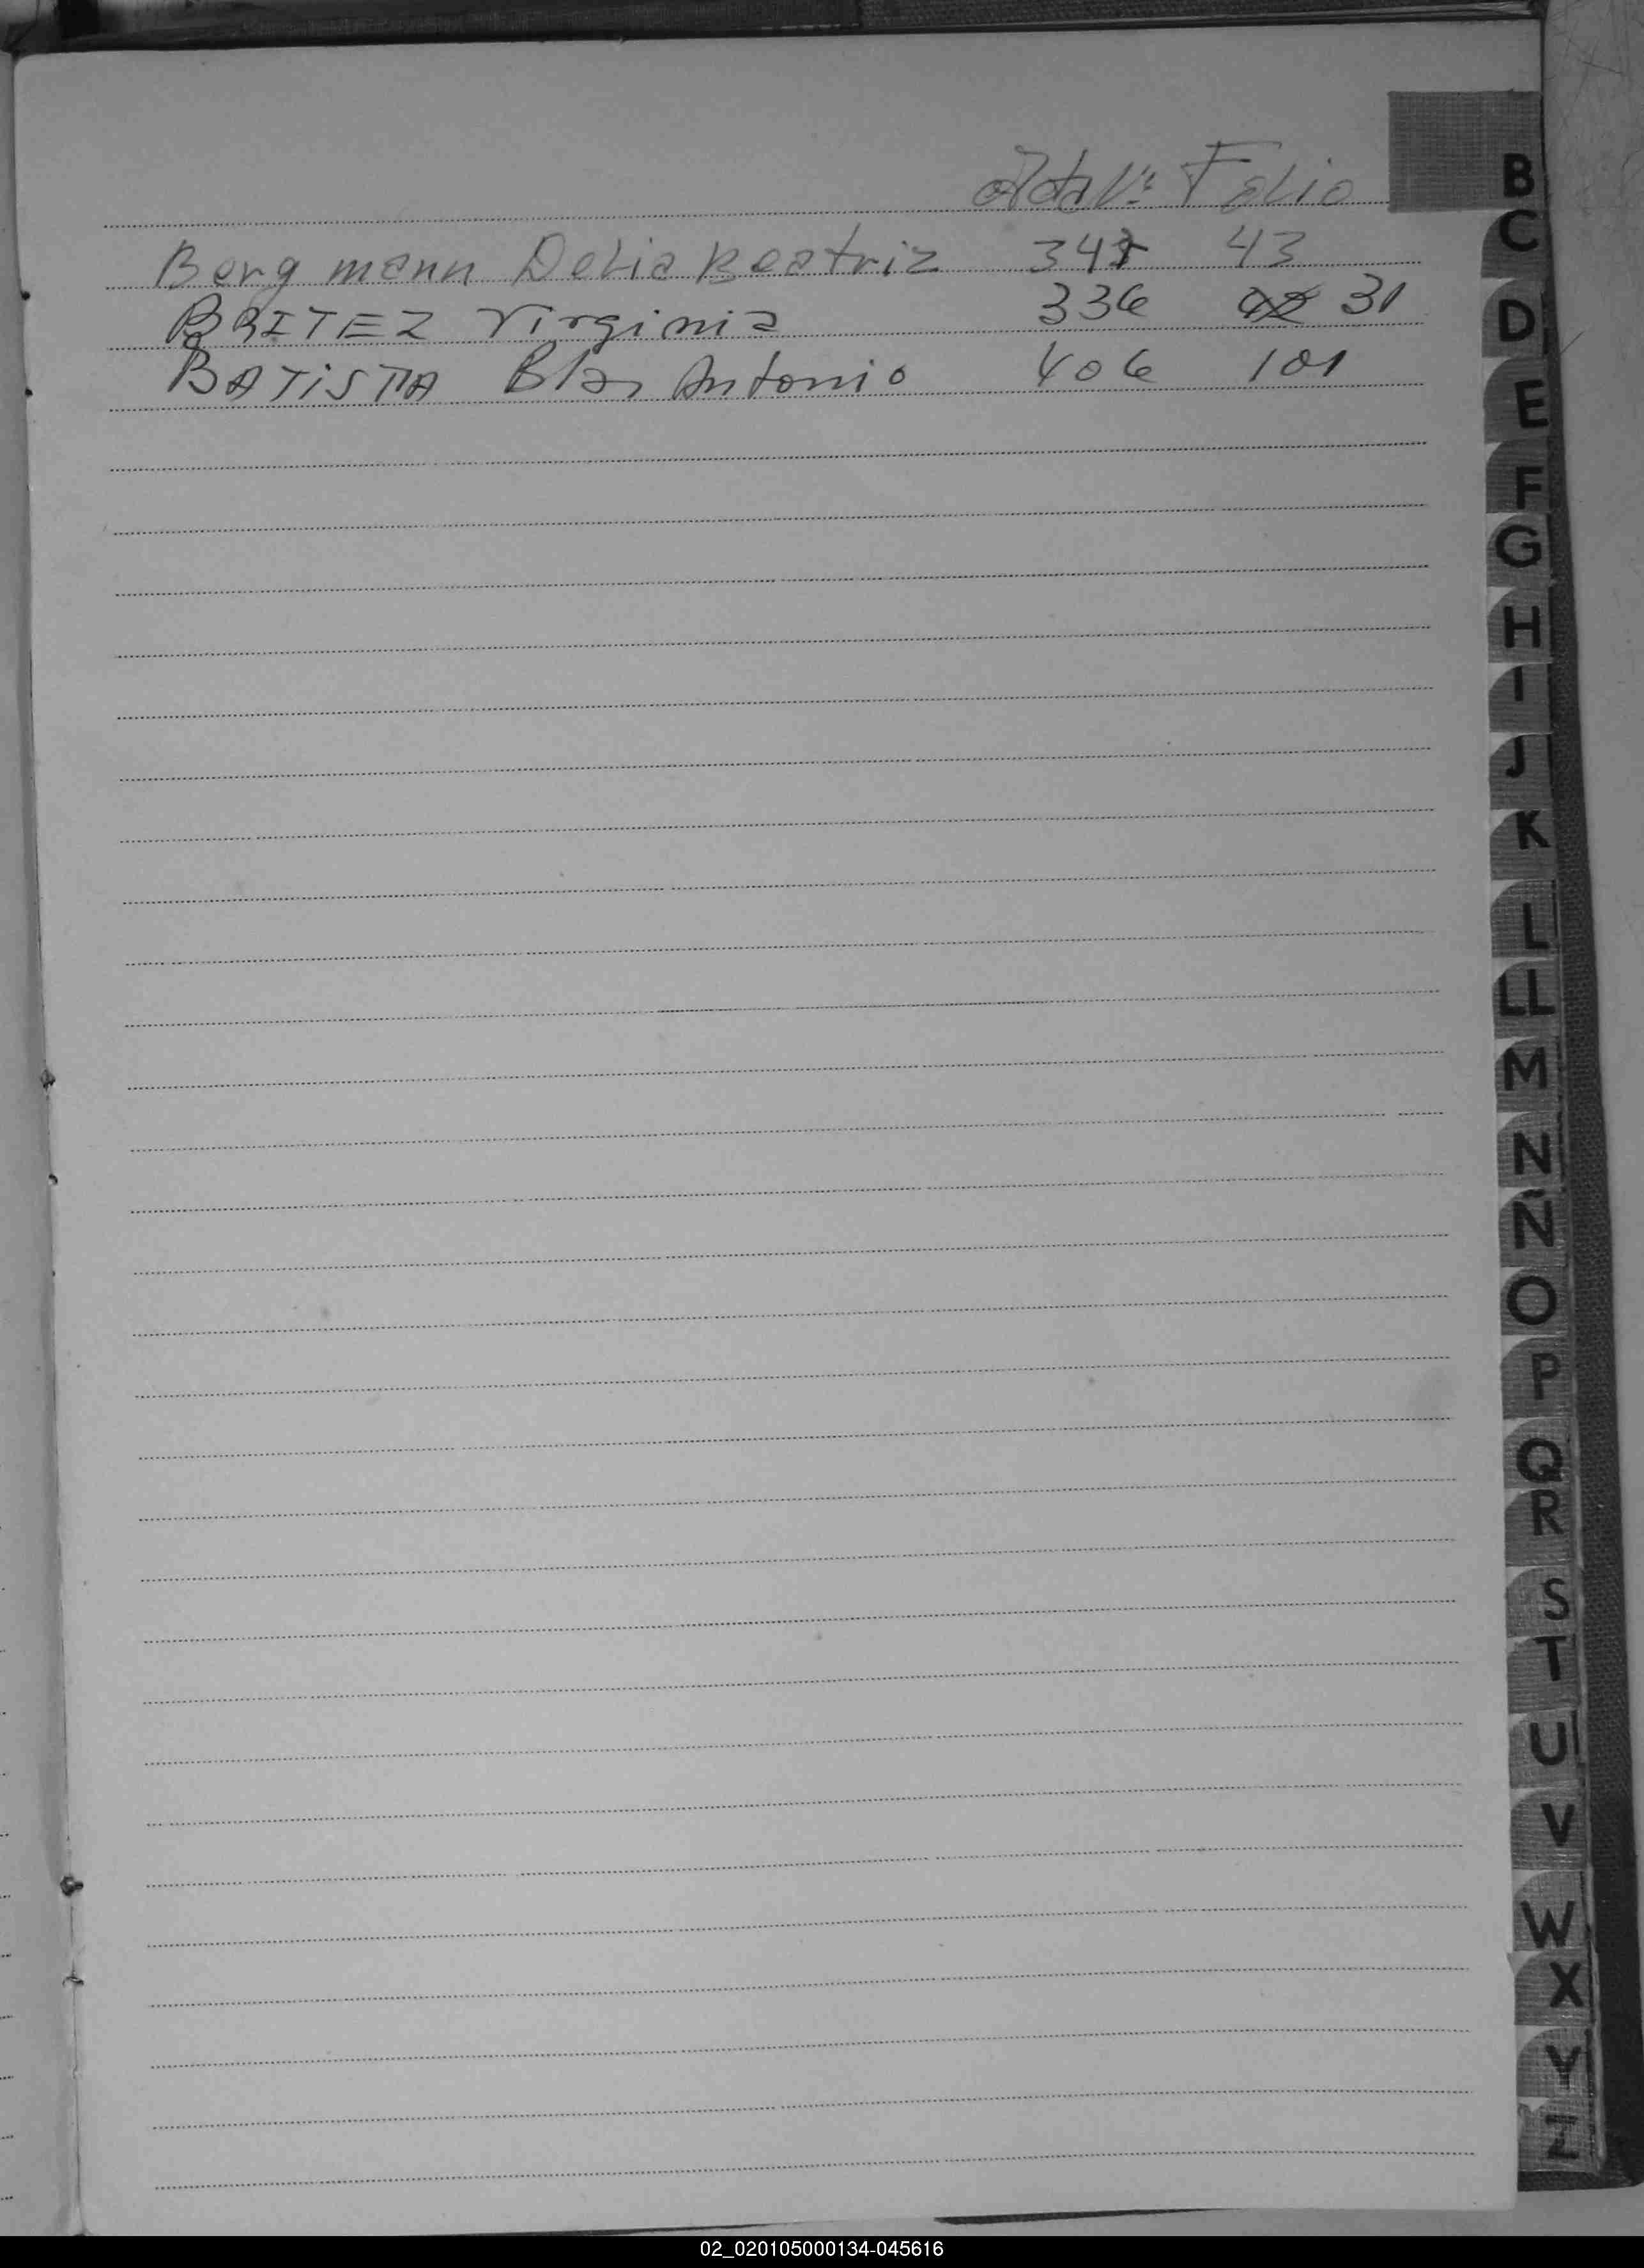 Acta Nº Folio
Bergmann Delia Beatriz 43
BRITEZ Virginia 336 31
BATISTA Blas Antonio 406 101
B
C
D
E
F
G
H
I
J
K
L
LL
M
N
Ñ
O
P
Q
R
S
T
U
V
W
X
Y
Z
02_020105000134-045616